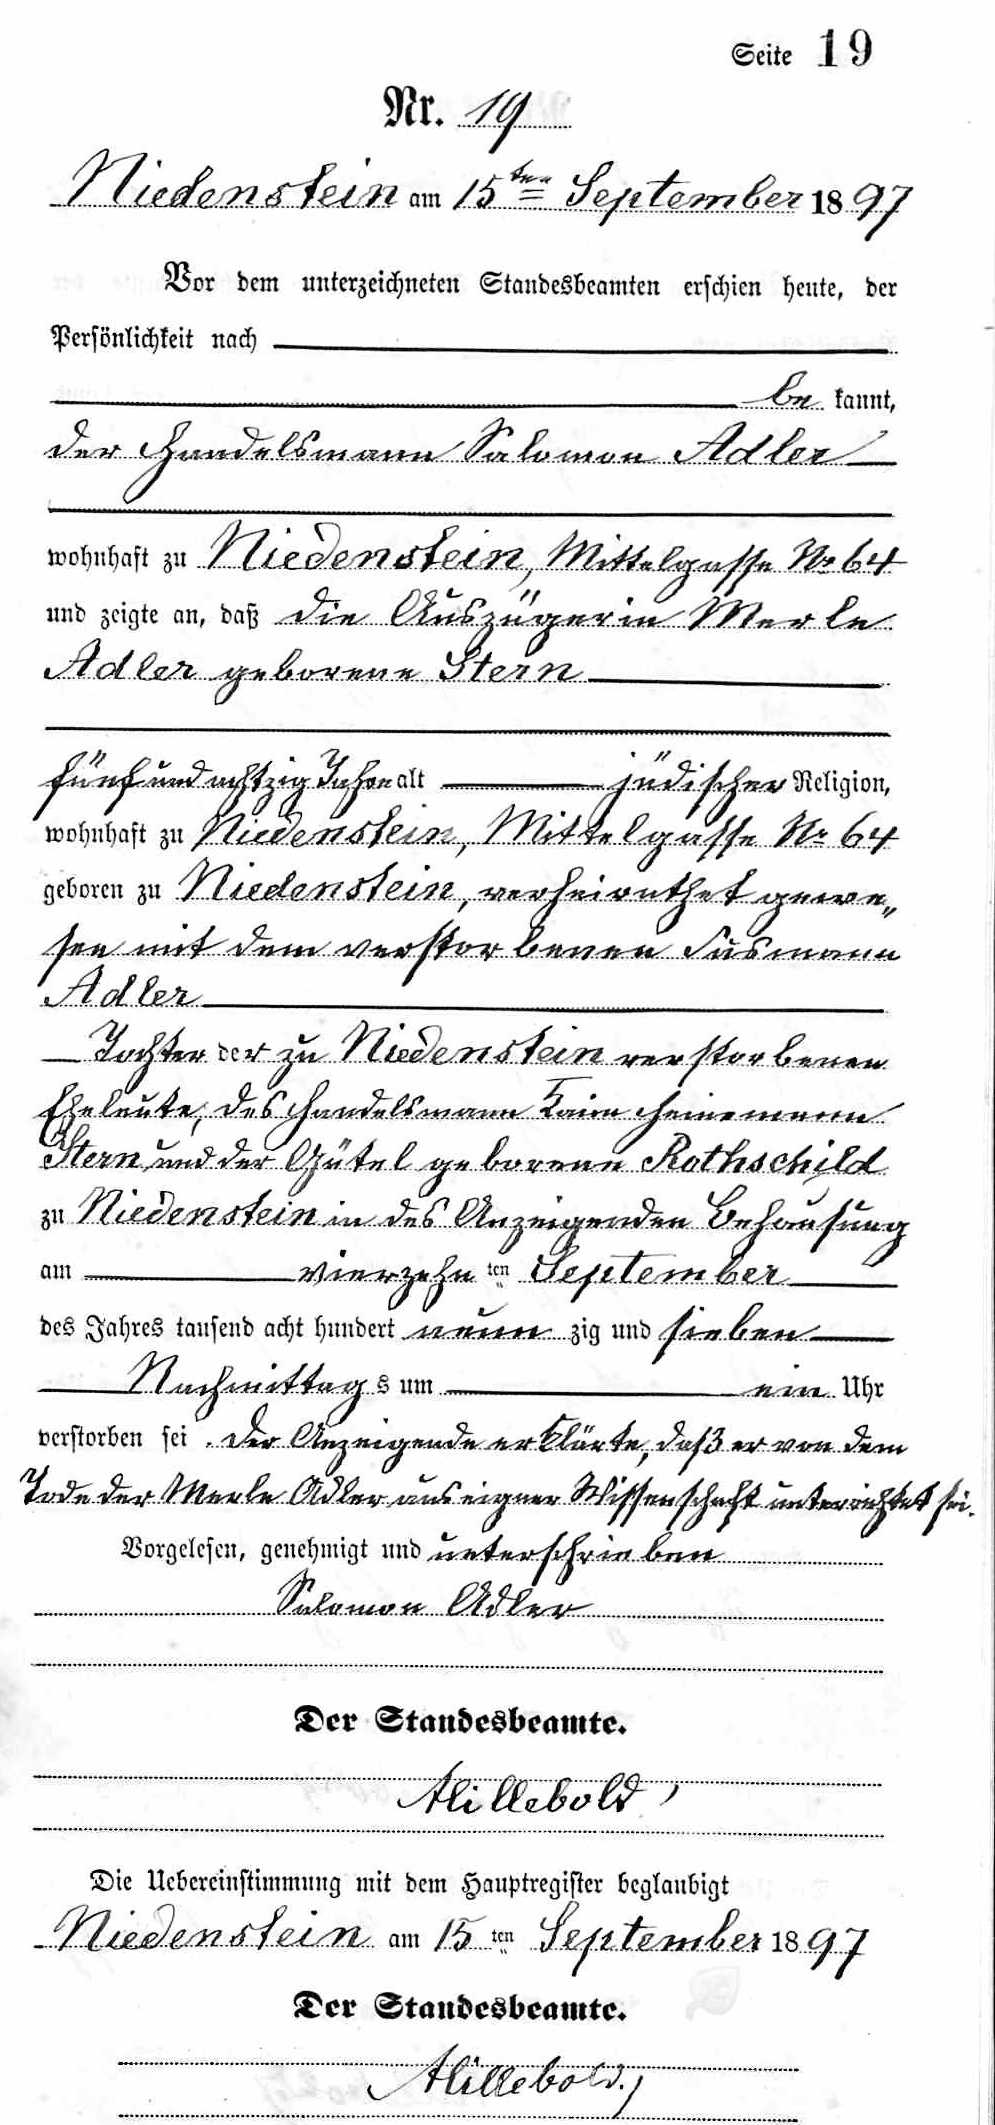 Seite 19
Nr. 19
Niedenstein am 15ten September 1897
Vor dem unterzeichneten Standesbeamten erschien heute, der
Persönlichkeit nach
be kannt,
der Handelsmann Salomon Adler
wohnhaft zu Niedenstein, Mittelgasse No 64
und zeigte an, daß die Auszügerin Merle
Adler geborene Stern
fünf und achtzig Jahre alt jüdischer Religion,
wohnhaft zu Niedenstein, Mittelgasse No 64
geboren zu Niedenstein, verheirathet gewe„
sen mit dem verstorbenen Susmann
Adler
Tochter der zu Niedenstein verstorbenen
Eheleute, des Handelsmann Heinemann
Stern und der Gütel geborene Rothschild
zu Niedenstein in des Anzeigenden Behausung
am vierzehn ten September
des Jahres tausend acht hundert neun zig und sieben
Nachmittag s um ein Uhr
verstorben sei. Der Anzeigende erklärte, daß er von dem
Tode der Merle Adler aus eigner Wissenschaft unterrichtet sei.
Vorgelesen, genehmigt und unterschrieben
Salomon Adler
Der Standesbeamte.
Die Uebereinstimmung mit dem Hauptregister beglaubigt
Niedenstein am 15 ten September 1897
Der Standesbeamte.